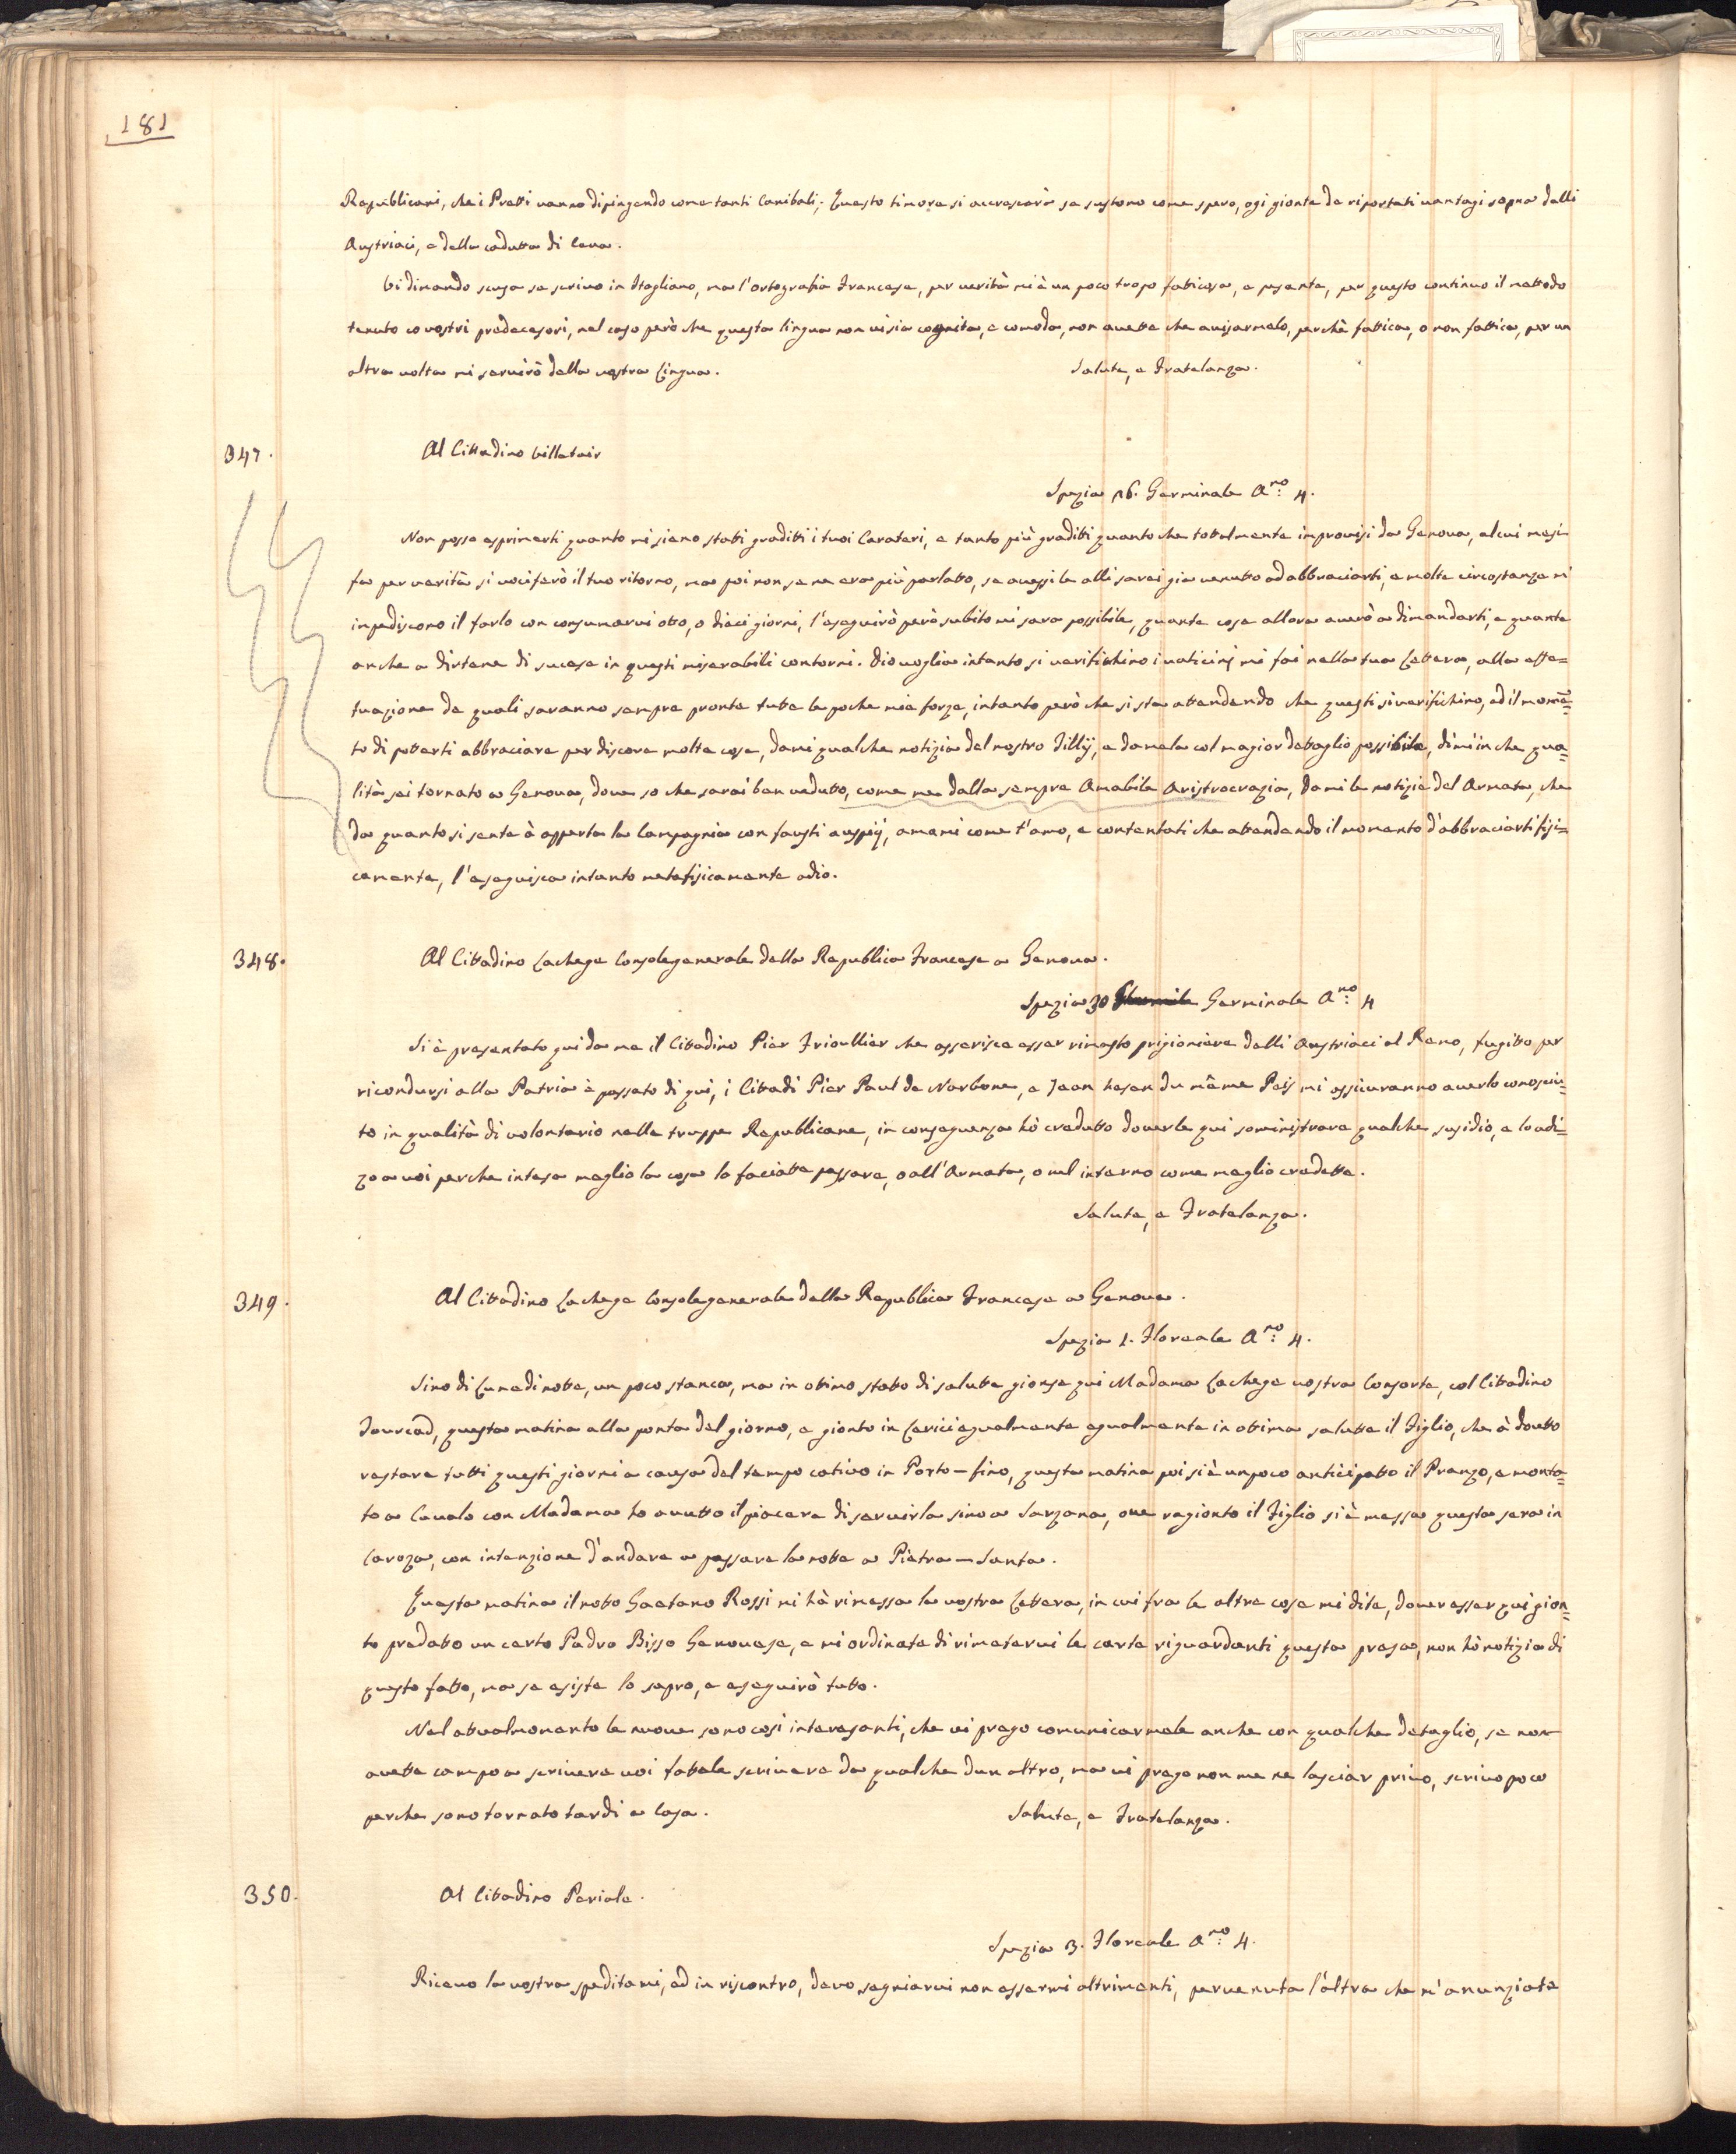 181
Republicani, che i Pretti vanno dipingendo come tanti Canibali; Questo timore si accrescerà se sustono come spero, ogi gionte de riportati vantagi sopra delli
Austriaci, e della cadutta di Ceva.
Vi dimando scusa se scrivo in Itagliano, ma l'ortografia Francese, per verità mi è un poco tropo faticosa, e pesante, per questo continuo il mettodo
tenuto co vostri predecesori, nel caso però che questa lingua non vi sia cognita, e comoda, non avette che avisarmelo, perchè fattica, o non fattica, per un
altra volta mi servirò della vostra Lingua. Salute, e Fratelanza.
347. Al Cittadino Villetair
Spezia 16. Germinale A.no 4.
Non posso esprimerti quanto mi sieno stati graditti i tuoi Carateri, e tanto più graditti quanto che totalmente improvisi da Genova, alcui mesi
fa per verità si vociferò il tuo ritorno, ma poi non se ne era più parlatto, se avessi le alli sarei gia venutto ad abbraciarti, e molte circostanze mi
impediscono il farlo con consumarvi otto, o dieci giorni, l'eseguirò però subito mi sara possibile, quante cose allora averò a dimandarti, e quante
anche a dirtene di sucese in questi miserabili contorni. Dio voglia intanto si verifichino i vaticinj mi fai nella tua Lettera, alla effe=
tuazione de quali saranno sempre pronte tutte le poche mie forze, intanto però che si sta attendendo che questi si verifichino, ed il momē=
to di potterti abbraciare per discore molte cose, dami qualche notizia del nostro Tillÿ, e damela col magior detaglio possibile, dimi in che qua=
lità sei tornato a Genova, dove so che sarai ben vedutto, come me dalla sempre Amabile Aristrocrazia, dami le notizie del Armata, che
da quanto si sente à apperta la Campagnia con fausti auspij, amami come t'amo, e contentati che attendendo il momento d'abbraciarti fisi=
camente, l'eseguisca intanto metafisicamente adio.
348. Al Cittadino Lachege Console generale della Republica Francese a Genova.
Spezia 30 Germinale A.no 4
Si è presentato qui da me il Cittadino Pier Frioullier che asserisce esser rimasto prigioniere delli Austriaci al Reno, fugitto per
ricondursi alla Patria è passato di qui, i Cittadi Pier Paul de Norbone, e Jean hesen du même Peis mi assicuranno averlo conosciu=
to in qualità di volontario nelle truppe Republicane, in conseguenza hò credutto doverle qui soministrare qualche susidio, e lo adi=
zo a voi perche intesa meglio la cosa lo faciatte passare, o all'Armata, o nel interno come meglio credette.
Salute, e Fratelanza.
349. Al Cittadino Lachege Console generale della Republica Francese a Genova.
Spezia 1. Floreale A.no 4.
Sino di Lunedi notte, un poco stanca, ma in ottimo statto di salutte gionse qui Madama Lachege vostra Consorte, col Cittadino
Jourcad, questa matina alla ponta del giorno, e gionto in Lerici egualmente egualmente in ottima salutte il Figlio, che à doutto
restare tutti questi giorni a causa del tempo cativo in Porto-fino, questa matina poi si è un poco anticipatto il Pranzo, e monta=
to a Cavalo con Madama ho avutto il piacere di servirla sino a Sarzana, ove ragionto il Figlio si è messa questa sera in
Caroza, con intenzione d'andare a passare la notte a Pietra-Santa.
Questa matina il notto Gaetano Rossi mi hà rimessa la vostra Lettera, in cui fra le altre cose mi dite, dover esser qui gion=
to predato un certo Padro Bisso Genovese, e mi ordinate di rimetervi le carte riguardanti questa presa, non hò notizia di
questo fatto, ma se esiste lo sapro, e eseguirò tutto.
Nel atual momento le nuove sono cosi interesanti, che vi prego comunicarmele anche con qualche detaglio, se non
avette campo a scrivere voi fatele scrivere da qualche dun altro, ma vi prego non me ne lasciar privo, scrivo poco
perche sono tornato tardi a Casa. Salute, e Fratelanza.
350. Al Cittadino Periole.
Spezia 3. Floreale A.no 4.
Ricevo la vostra speditami, ed in riscontro, devo segniarvi non essermi altrimenti, pervenuta l'altra che m'anunziate